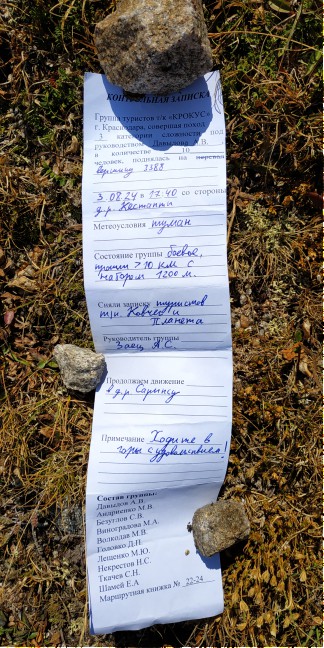 КОНТРОЛЬНАЯ ЗАПИСКА
Группа туристов т/к «КРОКУС»
г. Краснодара, совершая поход
3 категории сложности под
руководством Давыдова А.В.
в количестве 10
человек, поднялась на перевал
вершину 3388
3.08.24 в 17:40 со стороны
д.р.
Метеоусловия туман
Состояние группы боевое,
прошли >10 км с
набором 1200 м.
Сняли записку туристов
т/к. Ковчег и
Планета
Руководитель группы
Заец А.С.
Продолжим движение
в д.р.
Примечание Ходите в
горы с удовольствием!
Состав группы:
Давыдов А.В.
Андриенко М.В.
Безуглов С.В.
Виноградова М.А.
Волкодав М.В.
Головко Д.П.
Лещенко М.Ю.
Некрестов Н.С.
Ткачев С.Н.
Шамей Е.А
Маршрутная книжка № 22-24